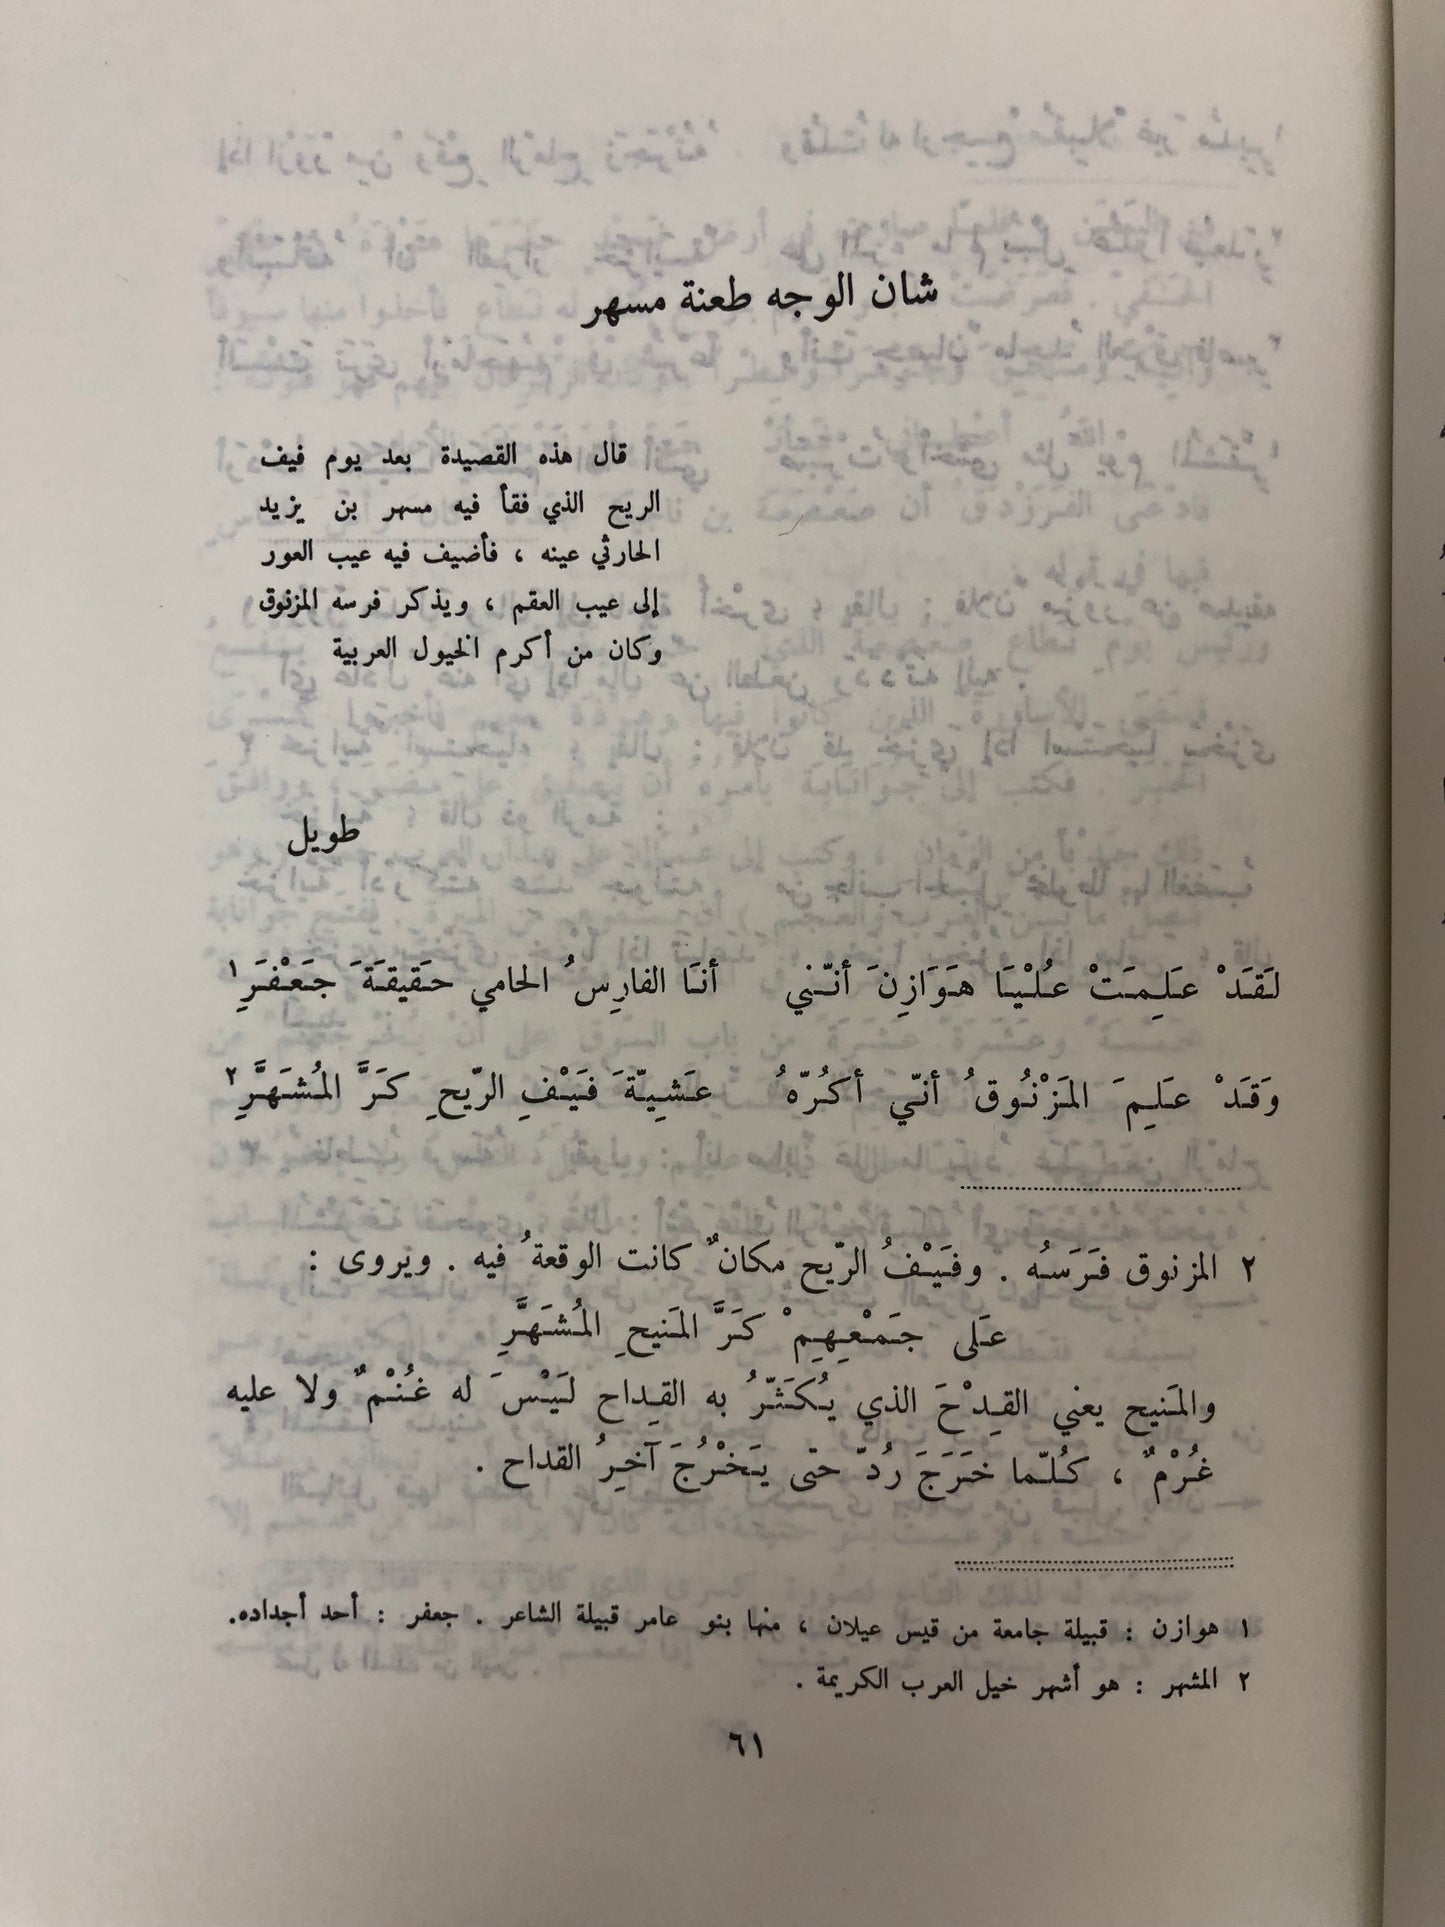 شان الوجه طعنة مسهر
قال هذه القصيدة بعد يوم فيف
الريح الذي فقأ فيه مسهر بن يزيد
الحارثي عينه ، فأضيف فيه عيب العور
إلى عيب العقم ، ويذكر فرسه المزنوق
وكان من أكرم الخيول العربية
طويل
لَقَدْ عَلِمَتْ عُلْيَا هَوَازِنَ أنّني أنَا الفارِسُ الحامي حَقيقَةَ جَعْفَرِ ١
وَقَدْ عَلِمَ المَزْنُوقُ أنّي أكُرّهُ عَشِيّةَ فَيْفِ الرّيحِ كَرَّ المُشَهَّرِ ٢
٢ المزنوق فَرَسُه . وفَيْفُ الرّيح مكانٌ كانت الوقعةُ فيه . ويروى :
عَلى جَمْعِهِمْ كَرَّ المَنيحِ المُشَهَّرِ
والمَنيح يعني القِدْحَ الذي يُكَثّرُ به القِداح لَيْسَ له غُنْمٌ ولا عليه
غُرْمٌ ، كُلّما خَرَجَ رُدّ حتى يَخْرُجَ آخِرُ القداح .
١ هوازن : قبيلة جامعة من قيس عيلان ، منها بنو عامر قبيلة الشاعر . جعفر : أحد أجداده.
٢ المشهر : هو أشهر خيل العرب الكريمة .
٦١